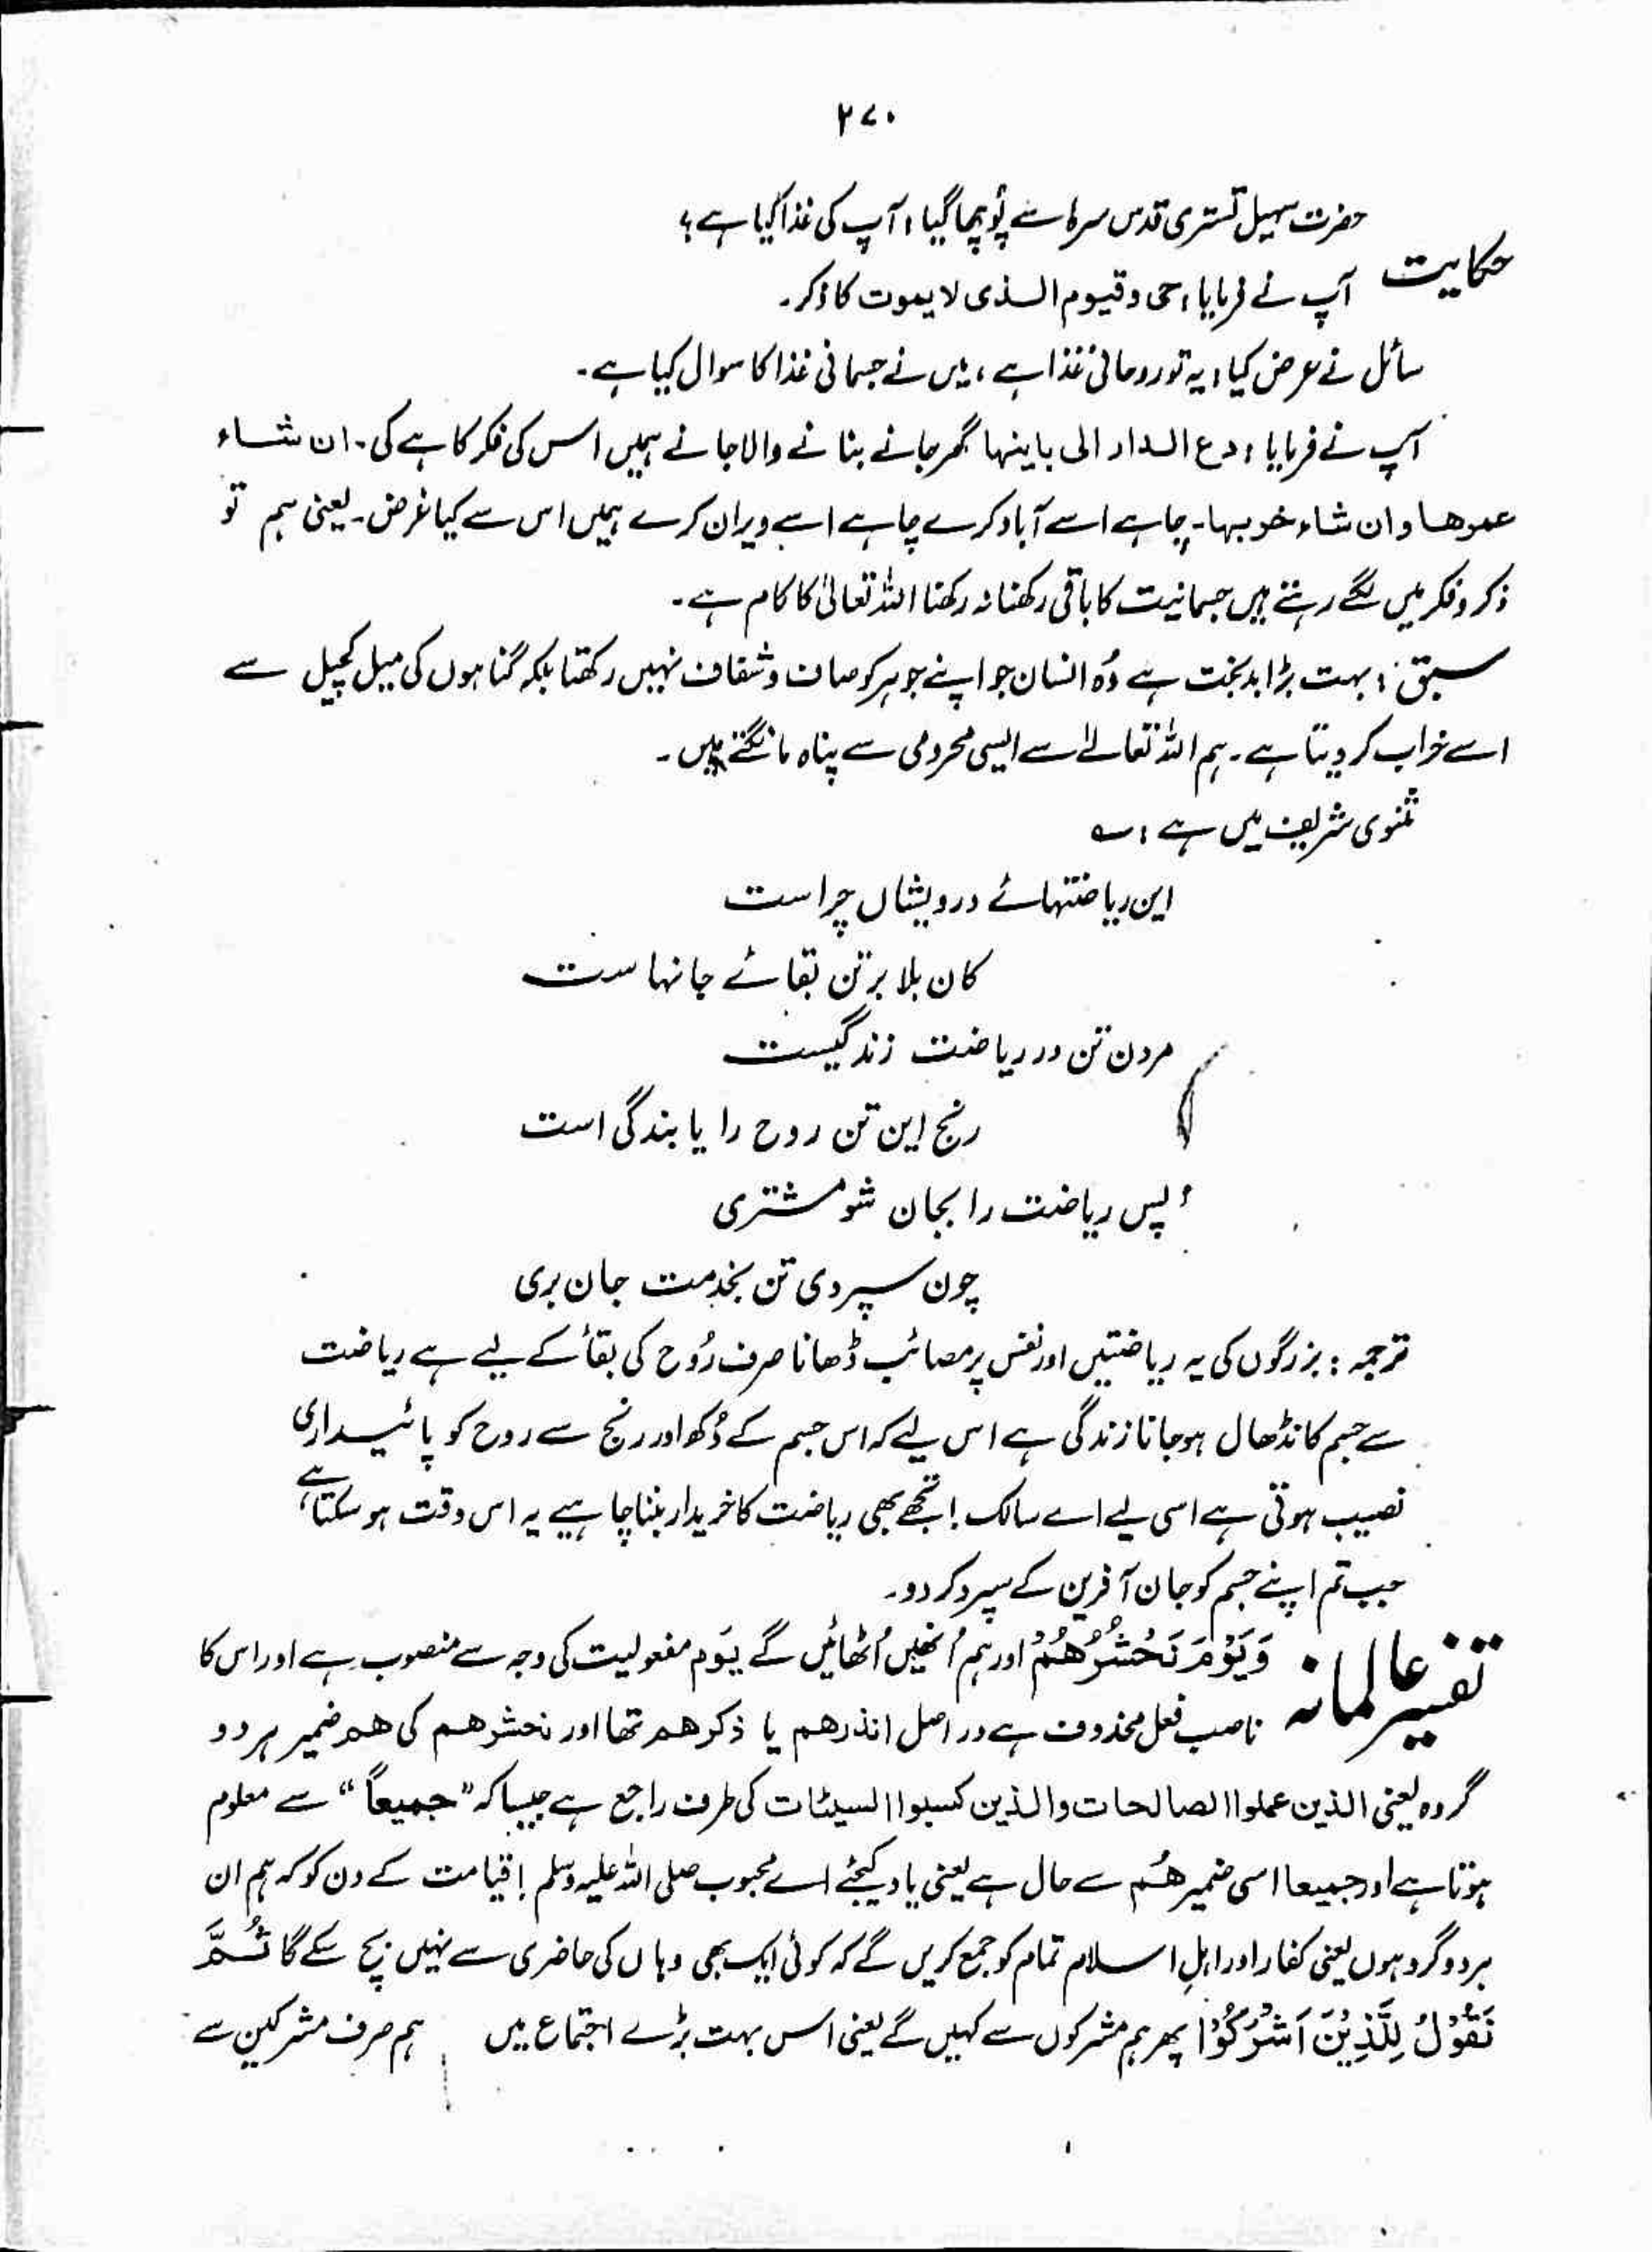 ۲۷۰
حضرت سہیل تستری قدس سرہٗ سے پُوچھا گیا، آپ کی غذا کیا ہے؟
حکایت
آپ نے فرمایا، حی و قیوم الذی لا یموت کا ذکر۔
سائل نے عرض کیا، یہ تو روحانی غذا ہے، میں نے جسمانی غذا کا سوال کیا ہے۔
آپ نے فرمایا، دع الدار الی باینہا گھر جانے بنانے والا جانے ہمیں اس کی فکر کا ہے کی۔ ان شاء
عمرها وان شاء خربہا۔ چاہے اسے آباد کرے چاہے اسے ویران کرے ہمیں اس سے کیا غرض۔ یعنی ہم تو
ذکر و فکر میں لگے رہتے ہیں جسمانیت کا باقی رکھنا نہ رکھنا اللہ تعالیٰ کا کام ہے۔
سبق: بہت بڑا بدبخت ہے وُہ انسان جو اپنے جوہر کو صاف و شفاف نہیں رکھتا بلکہ گناہوں کی میل کچیل سے
اسے خراب کر دیتا ہے۔ ہم اللہ تعالےٰ سے ایسی محرومی سے پناہ مانگتے ہیں۔
مثنوی شریف میں ہے: ؎
این ریاضتہائے درویشاں چراست
کان بلا بر تن بقائے جانہاست
مردن تن در ریاضت زندگیست
رنج این تن روح را پابندگی است
پس ریاضت را بجان شو مشتری
چون سپردی تن بخدمت جان بری
ترجمہ: بزرگوں کی یہ ریاضتیں اور نفس پر مصائب ڈھانا صرف رُوح کی بقأ کے لیے ہے ریاضت
سے جسم کا نڈھال ہوجانا زندگی ہے اس لیے کہ اس جسم کے دُکھ اور رنج سے روح کو پائیداری
نصیب ہوتی ہے اسی لیے اے سالک! تجھے بھی ریاضت کا خریدار بننا چاہیے یہ اس وقت ہو سکتا ہے،
جب تم اپنے جسم کو جان آفرین کے سپرد کر دو۔
تفسیر عالمانہ
وَيَوْمَ نَحْشُرُهُمْ اور ہم اُنھیں اُٹھائیں گے یَوم مفعولیت کی وجہ سے منصوب ہے اور اس کا
ناصب فعل محذوف ہے در اصل انذرهم یا ذکرهم تھا اور نحشرهم کی هم ضمیر ہر دو
گروہ یعنی الذین عملوا الصالحات والذین کسبوا السیئات کی طرف راجع ہے جیسا کہ "جمیعاً" سے معلوم
ہوتا ہے اور جمیعا اسی ضمیر هُم سے حال ہے یعنی یاد کیجئے اے محبوب صلی اللہ علیہ وسلم! قیامت کے دن کو کہ ہم ان
ہر دو گروہوں یعنی کفار اور اہلِ اسلام تمام کو جمع کریں گے کہ کوئی ایک بھی وہاں کی حاضری سے نہیں بچ سکے گا ثُمَّ
نَقُوْلُ لِلَّذِيْنَ اَشْرَكُوْا پھر ہم مشرکوں سے کہیں گے یعنی اس بہت بڑے اجتماع میں ہم صرف مشرکین سے